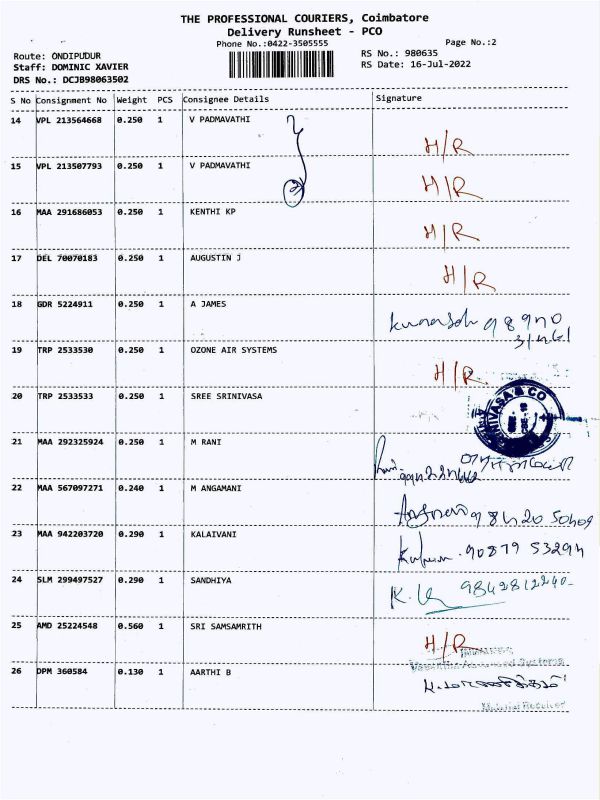 THE PROFESSIONAL COURIERS, Coimbatore
Delivery Runsheet - PCO
Phone No.:0422-3505555 Page No.:2
Route: ONDIPUDUR RS No.: 980635
Staff: DOMINIC XAVIER RS Date: 16-Jul-2022
DRS No.: DCJB98063502
S No Consignment No Weight PCS Consignee Details Signature
14 VPL 213564668 0.250 1 V PADMAVATHI H/R
15 VPL 213507793 0.250 1 V PADMAVATHI H/R
2
16 MAA 291686053 0.250 1 KENTHI KP H/R
17 DEL 70070183 0.250 1 AUGUSTIN J H/R
18 GDR 5224911 0.250 1 A JAMES
19 TRP 2533530 0.250 1 OZONE AIR SYSTEMS H/R
20 TRP 2533533 0.250 1 SREE SRINIVASA
21 MAA 292325924 0.250 1 M RANI
22 MAA 567097271 0.240 1 M ANGAMANI
23 MAA 942203720 0.290 1 KALAIVANI 90879 53294
24 SLM 299497527 0.290 1 SANDHIYA 9842812240
25 AMD 25224548 0.560 1 SRI SAMSAMRITH H/R
26 DPM 360584 0.130 1 AARTHI B